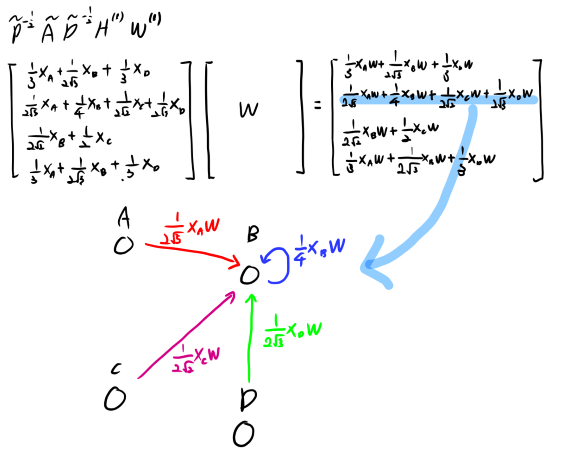 D̃^{-1/2} Ã D̃^{-1/2} H^{(1)} W^{(1)}
[ 1/3 X_A + 1/(2√3) X_B + 1/3 X_D
1/(2√3) X_A + 1/4 X_B + 1/(2√2) X_C + 1/(2√3) X_D
1/(2√2) X_B + 1/2 X_C
1/3 X_A + 1/(2√3) X_B + 1/3 X_D ]
[ W ] =
[ 1/3 X_A W + 1/(2√3) X_B W + 1/3 X_D W
1/(2√3) X_A W + 1/4 X_B W + 1/(2√2) X_C W + 1/(2√3) X_D W
1/(2√2) X_B W + 1/2 X_C W
1/3 X_A W + 1/(2√3) X_B W + 1/3 X_D W ]
A
1/(2√3) X_A W
B
1/4 X_B W
1/(2√3) X_D W
1/(2√2) X_C W
C
D